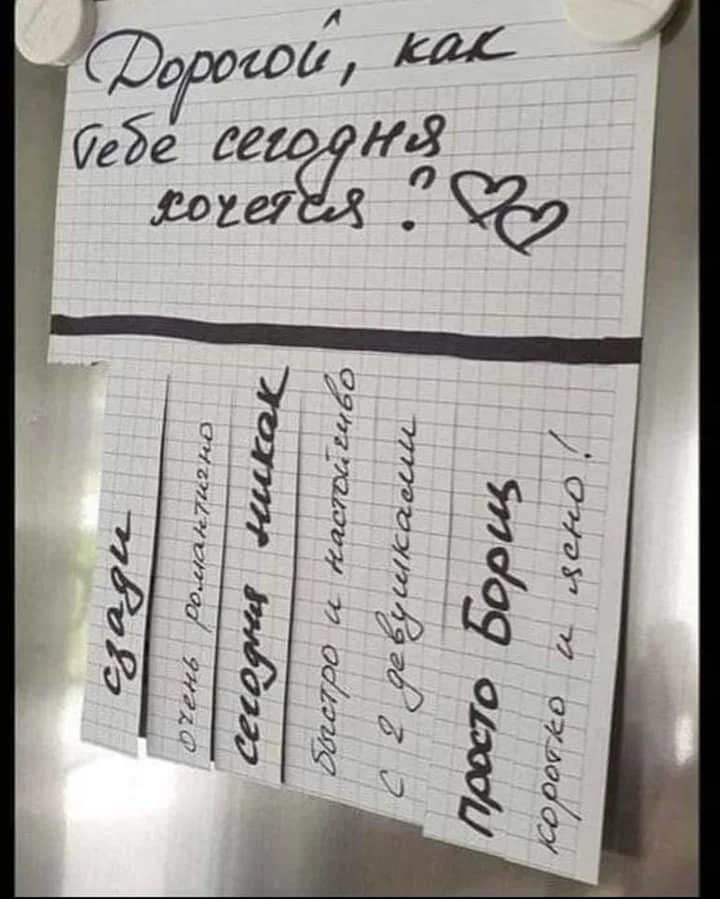 Дорогой, как
тебе сегодня
хочется?
сзади
очень романтично
сегодня никак
быстро и настойчиво
с 2 девушками
Просто Борщ
коротко и ясно!